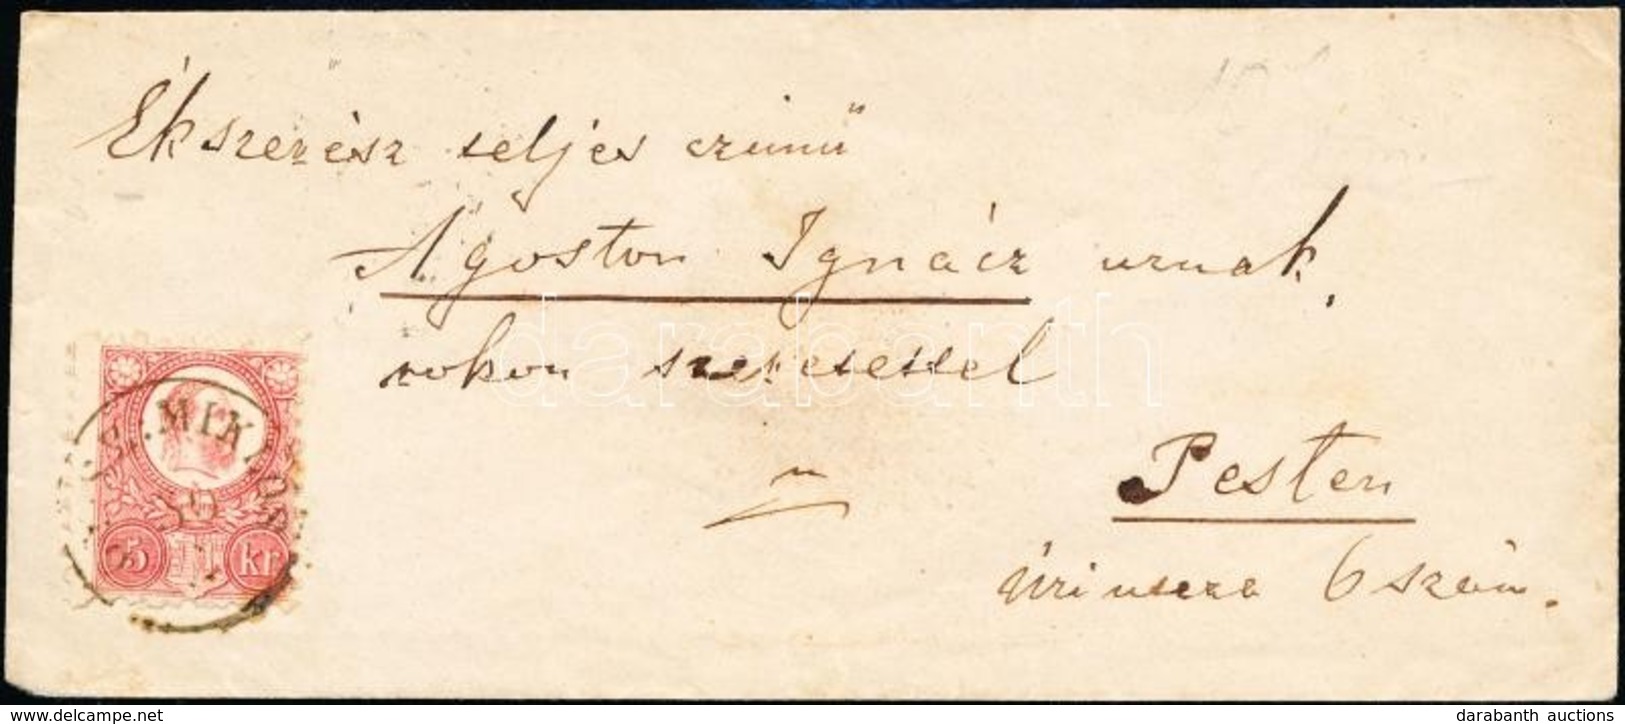 Ékszerész teljes czimü
Ágoston Ignácz urnak,
rokon szeretettel
Pesten
Úri utcza 6 szám.
MIKLOS
30
5 kr
darabanth
delcampe.net
darabanth auctions